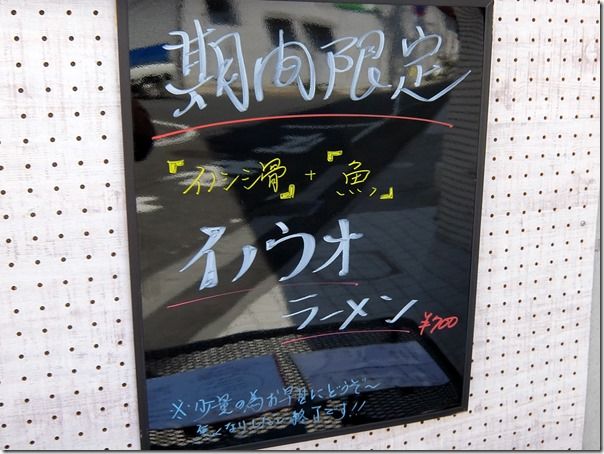 期間限定
『イノシシ骨』+『魚』
イノウオ
ラーメン ¥700
※少量の為お早目にどうぞ〜
無くなりしだい終了です!!